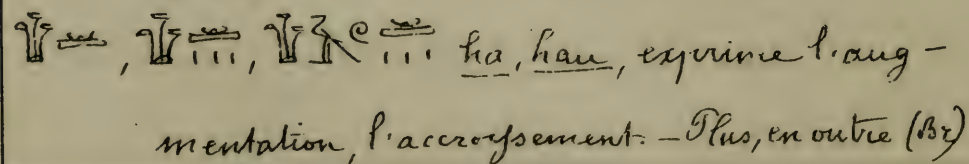 𓇉𓏛, 𓇉𓏛𓏥, 𓇉𓄿𓏲𓏛𓏥 ha, hau, exprime l'aug-
mentation, l'accroyssement. – Plus, en outre (Br)